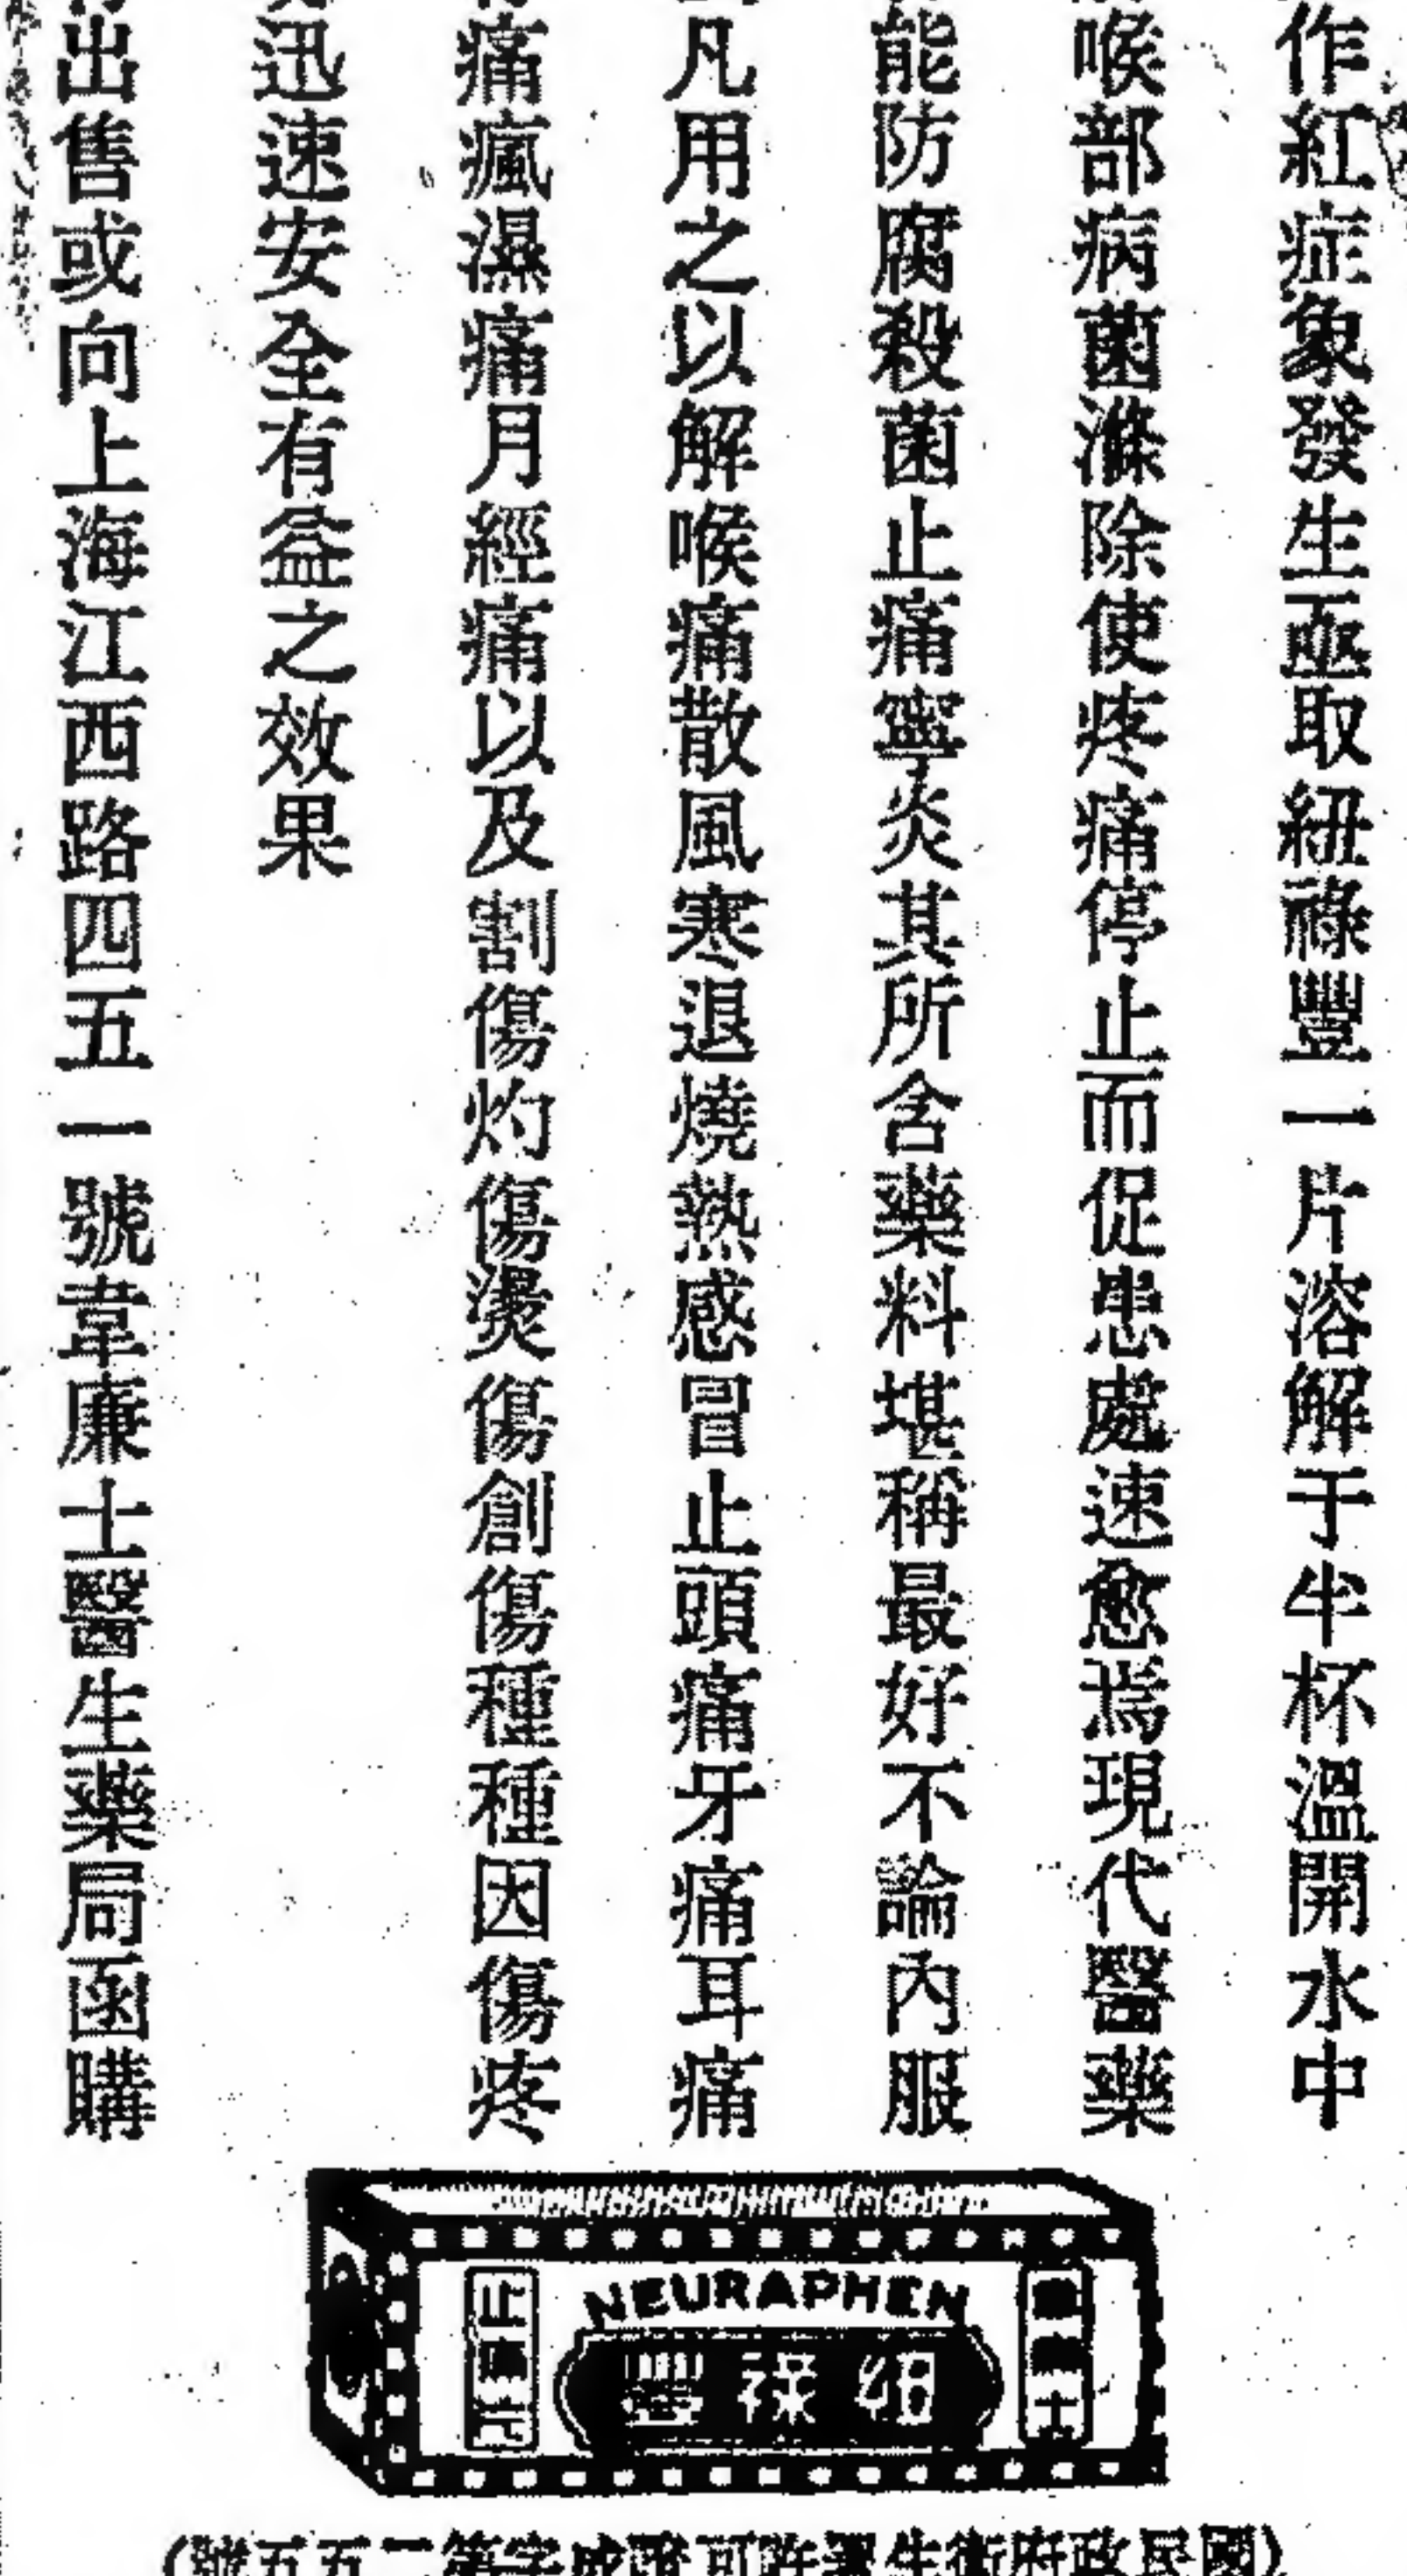 作紅症象發生亟取紐祿豐一片溶解于半杯溫開水中
喉部病菌滌除使疼痛停止而促患處速愈焉現代醫藥
能防腐殺菌止痛寧炎其所含藥料堪稱最好不論內服
凡用之以解喉痛散風寒退燒熱感冒止頭痛牙痛耳痛
痛瘋濕痛月經痛以及割傷灼傷燙傷創傷種種因傷疼
迅速安全有益之效果
出售或向上海江西路四五一號韋廉士醫生藥局函購
NEURAPHEN
紐祿豐
止痛片
(國民政府衛生署許可證成字第二五五號)